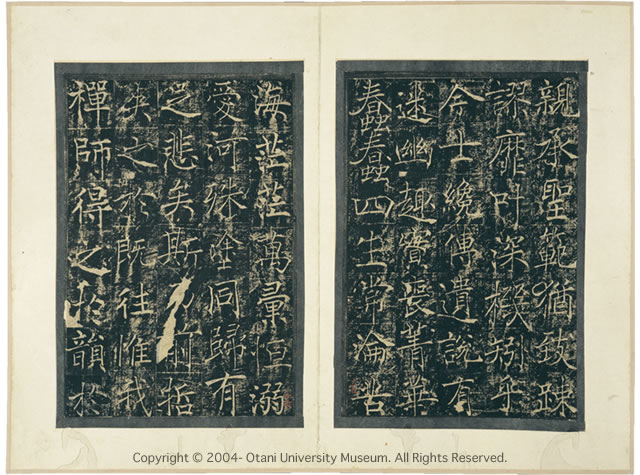 親承聖範猶致踈
謬靡討深機矧乎
士纔傳遺説有
迷幽趣甞喪菁華
蠢蠢四生常淪苦
海茫茫萬彙恒溺
愛河殊塗同歸有
足悲矣斯乃前哲
失之於既往惟我
禪師得之於韻於
Copyright © 2004- Otani University Museum. All Rights Reserved.